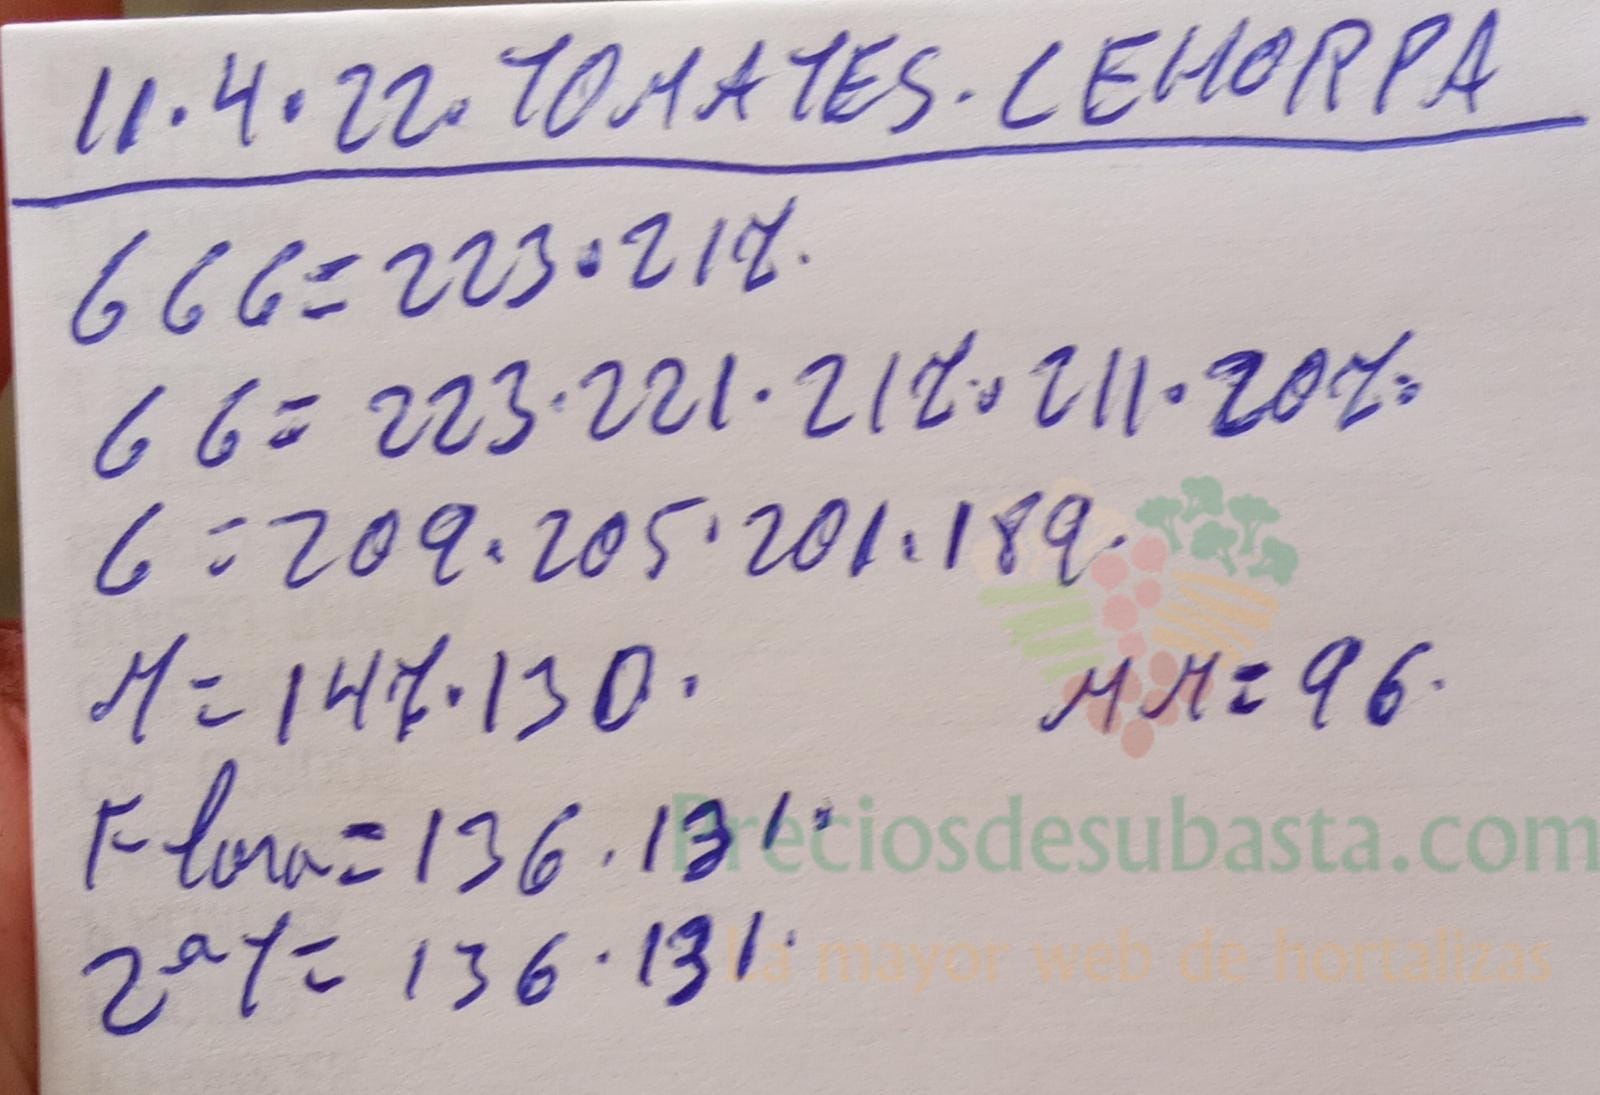 11.4.22. TOMATES. CEHORPA
GGG= 223.217.
GG= 223.221.217.211.207.
G=209.205.201.189.
M=147.130. MM=96.
Flora=136.131.
2ªT= 136.131.
Preciosdesubasta.com
La mayor web de hortalizas